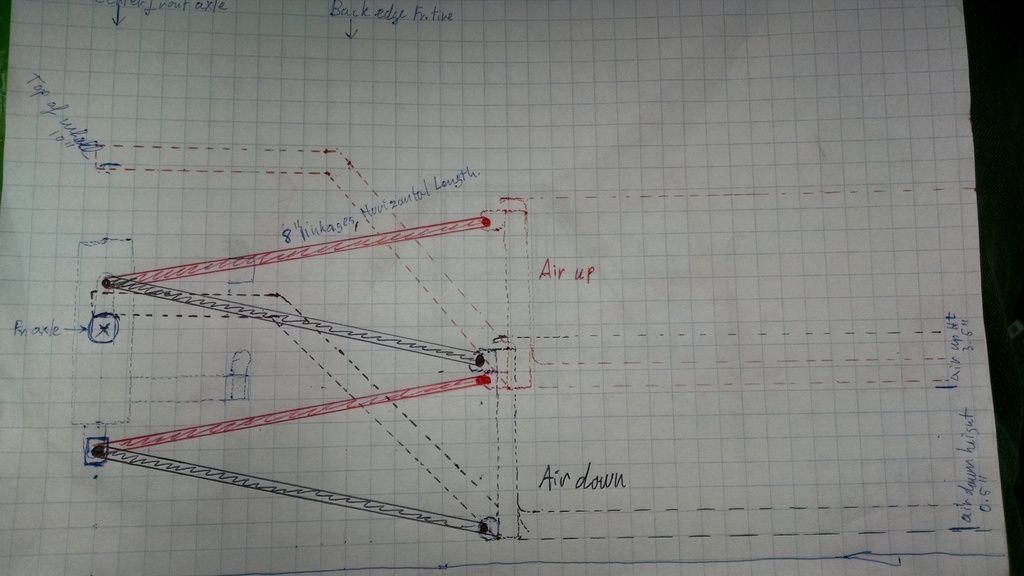 Center front axle
Back edge Fr tire
Top of wheel
10"
8" linkages, Horizontal Length.
Air up
Fr axle
air up ht
3.5"
Air down
air down height
0.5"